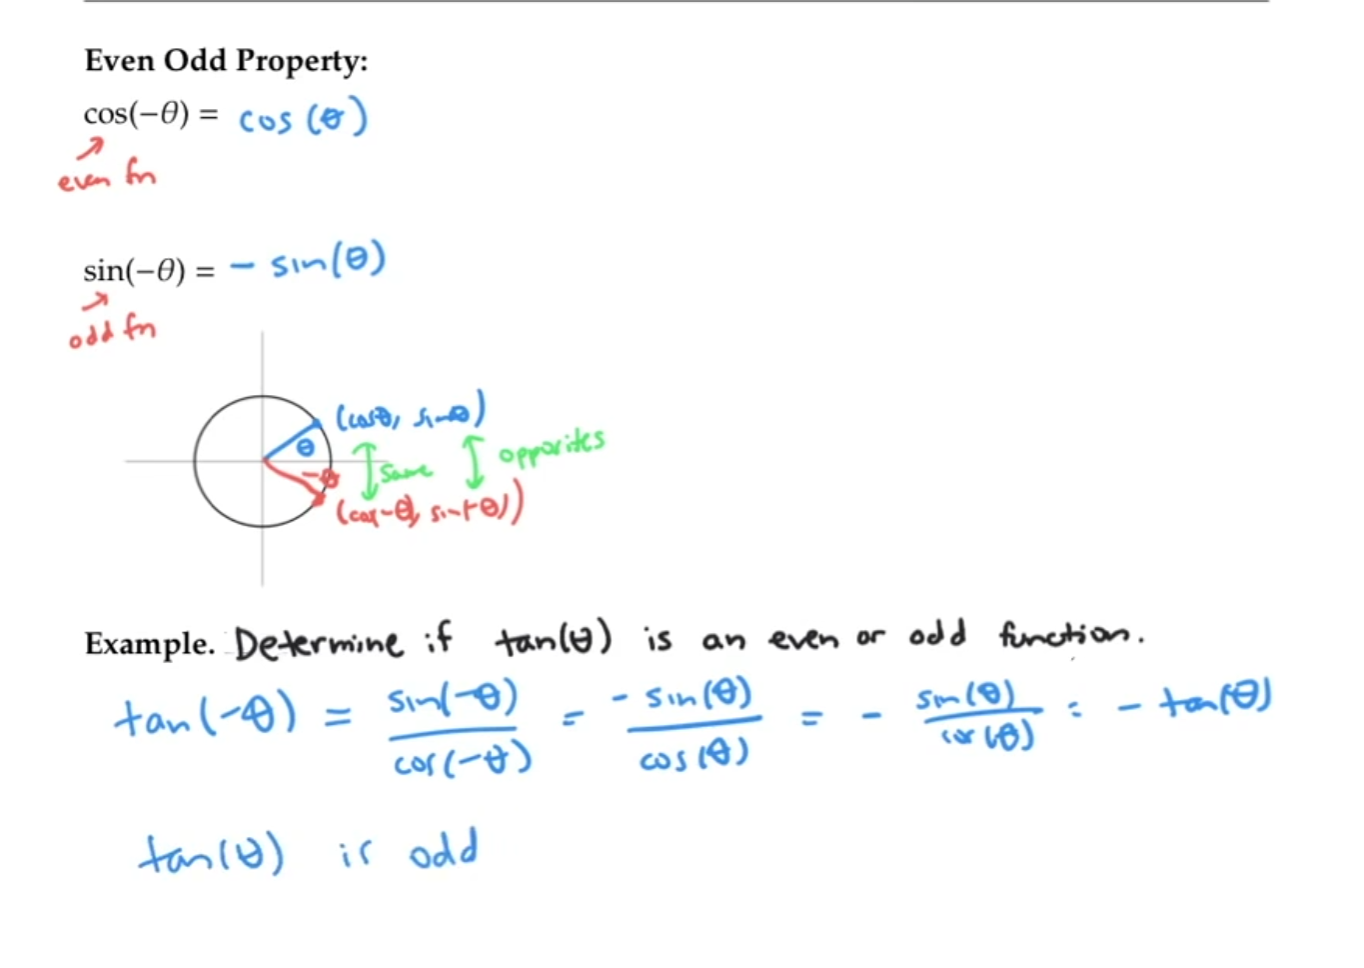 Even Odd Property:
cos(−θ) = cos (θ)
even fn
sin(−θ) = − sin(θ)
odd fn
(cosθ, sinθ)
θ
same
opposites
−θ
(cos(−θ), sin(−θ))
Example. Determine if tan(θ) is an even or odd function.
tan(−θ) = sin(−θ)/cos(−θ) = − sin(θ)/cos(θ) = − sin(θ)/cos(θ) = − tan(θ)
tan(θ) is odd